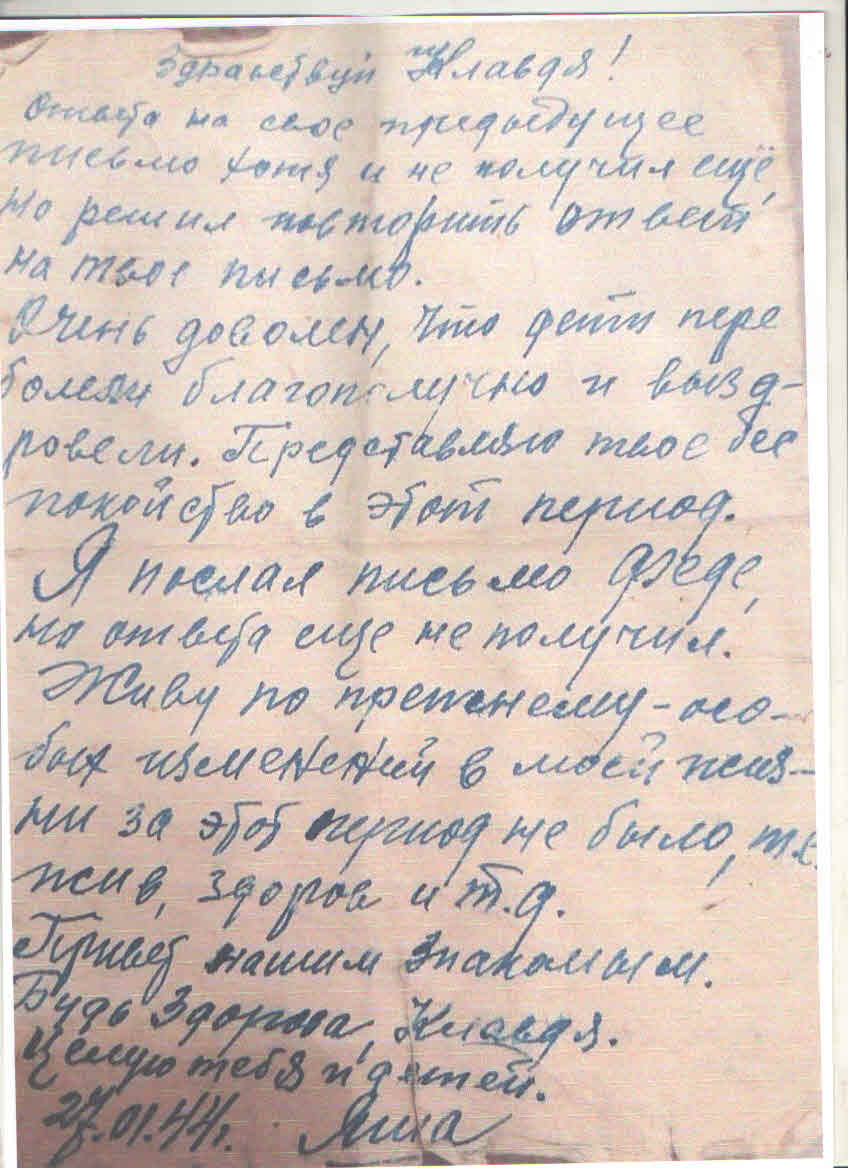 Здравствуй Клавдя!
Ответа на свое предыдущее
письмо хотя и не получил ещё,
но решил повторить ответ
на твое письмо.
Очень доволен, что дети пере
болели благополучно и вызд-
ровели. Представляю твое бес
покойство в этот период.
Я послал письмо Феде,
но ответа еще не получил.
Живу по прежнему - осо-
бых изменений в моей жиз-
ни за этот период не было, т.е.
жив, здоров и т.д.
Привет нашим знакомым.
Будь здорова, Клавдя.
Целую тебя и детей.
27.01.44г. Яша